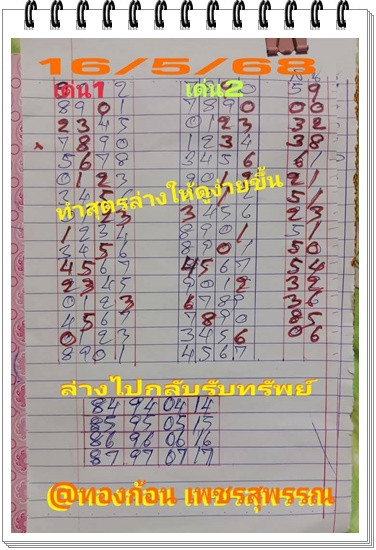 16/5/68
เด่น1 เด่น2
2 59
8901 7890 00
2345 0123 32
7890 1234 38
5678 3456 61
0123
ทำสูตรล่างให้ดูง่ายขึ้น
23 3456 23
1234 8901 51
3456 01 50
4567 4567 54
2345 9012 32
0123 6789 36
4567 7890 85
0123 3456 06
8901 4567
ล่างไปกลับรับทรัพย์
84 94 04 14
85 95 05 15
86 96 06 16
87 97 07 17
@ทองก้อน เพชรสุพรรณ